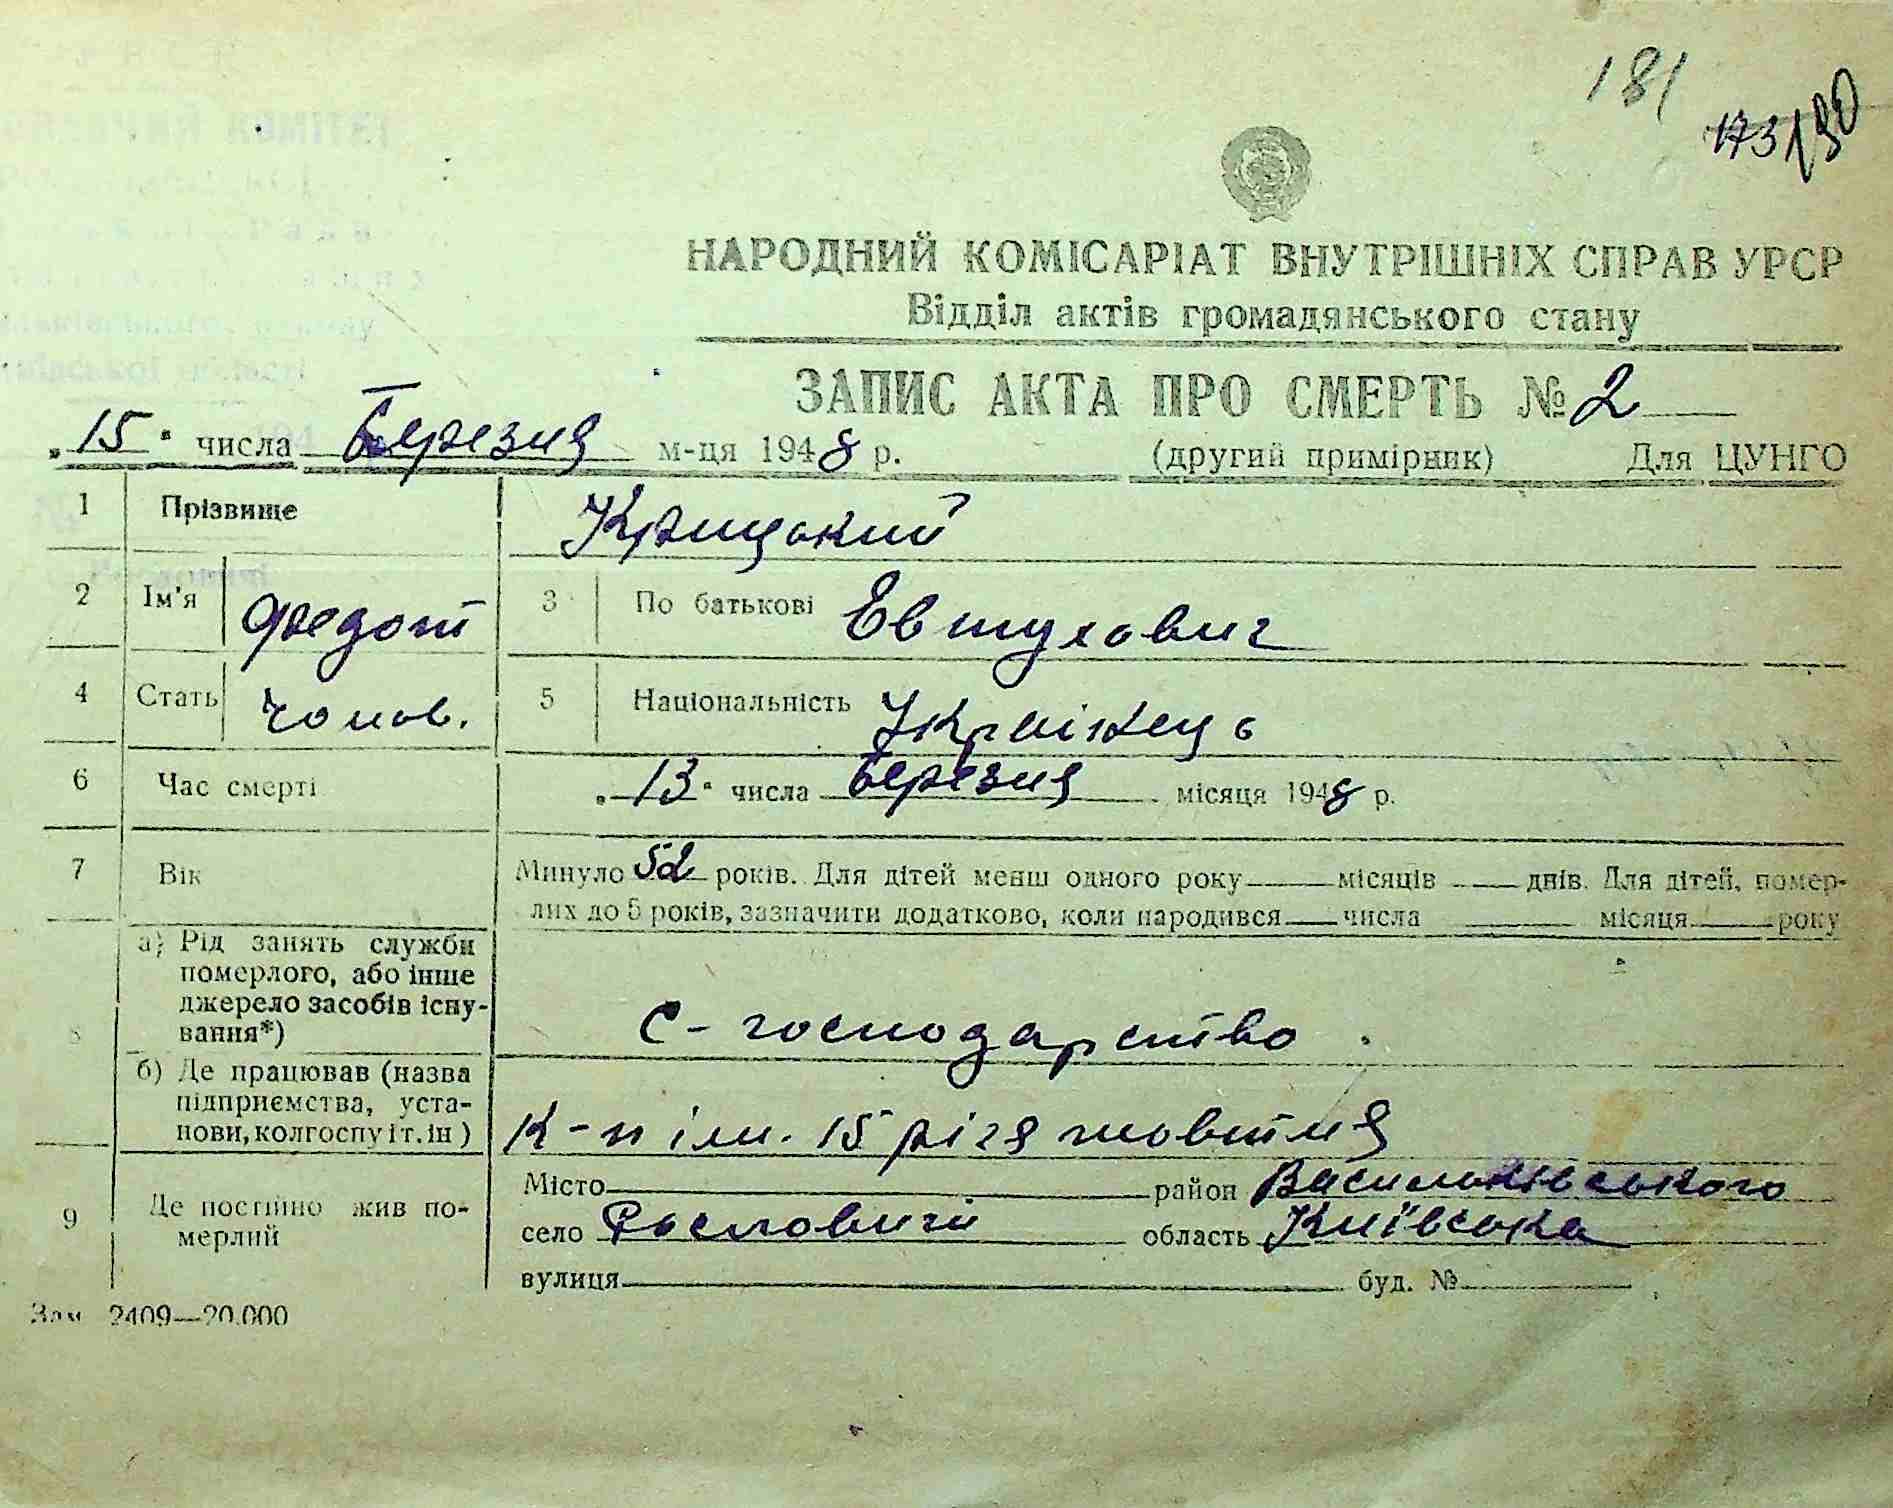 181
173 190
НАРОДНИЙ КОМІСАРІАТ ВНУТРІШНІХ СПРАВ УРСР
Відділ актів громадянського стану
ЗАПИС АКТА ПРО СМЕРТЬ № 2
„15" числа Березня м-ця 1948 р. (другий примірник) Для ЦУНГО
1 Прізвище Крицький
2 Ім'я Федот 3 По батькові Евтухович
4 Стать Чолов. 5 Національність Українець
6 Час смерті „13" числа Березня місяця 1948 р.
7 Вік Минуло 52 років. Для дітей менш одного року місяців днів. Для дітей, помер-
лих до 5 років, зазначити додатково, коли народився числа місяця року
8 а) Рід занять служби
померлого, або інше
джерело засобів існу-
вання*) С-господарство
б) Де працював (назва
підприємства, уста-
нови, колгоспу і т. ін) К-п ім. 15 річя жовтня
9 Де постійно жив по-
мерлий
Місто район Васильківського
село Рословичі область Київська
вулиця буд. №
Зам 2409—20.000